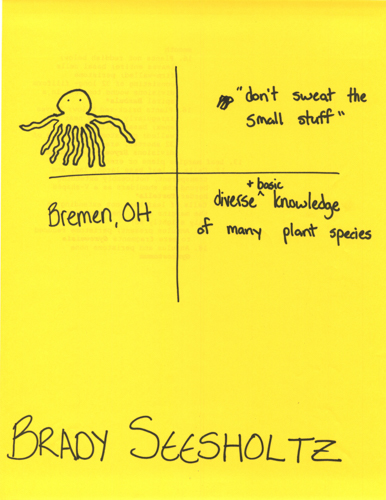 "don't sweat the
small stuff"
Bremen, OH
+ basic
diverse ^ knowledge
of many plant species
BRADY SEESHOLTZ